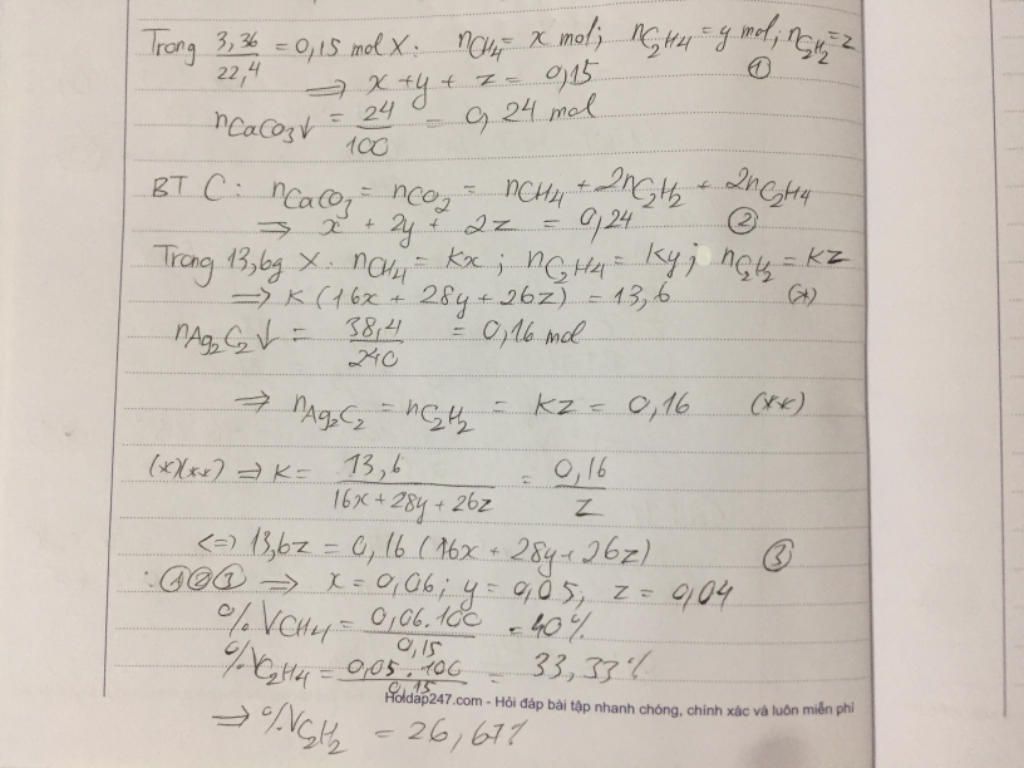 Trong 3,36/22,4 = 0,15 mol X: nCH4 = x mol; nC2H4 = y mol; nC2H2 = z
=> x + y + z = 0,15 ①
nCaCO3↓ = 24/100 = 0,24 mol
BT C: nCaCO3 = nCO2 = nCH4 + 2nC2H2 + 2nC2H4
=> x + 2y + 2z = 0,24 ②
Trong 13,6g X: nCH4 = kx; nC2H4 = ky; nC2H2 = kz
=> k (16x + 28y + 26z) = 13,6 (*)
nAg2C2↓ = 38,4/240 = 0,16 mol
=> nAg2C2 = nC2H2 = kz = 0,16 (**)
(*)(**) => k = 13,6/16x+28y+26z = 0,16/z
<=> 13,6z = 0,16 (16x + 28y + 26z) ③
: ①②③ => x = 0,06; y = 0,05; z = 0,04
%VCH4 = 0,06.100/0,15 = 40%
%VC2H4 = 0,05.100/0,15 = 33,33%
Hoidap247.com - Hỏi đáp bài tập nhanh chóng, chính xác và luôn miễn phí
=> %VC2H2 = 26,67%